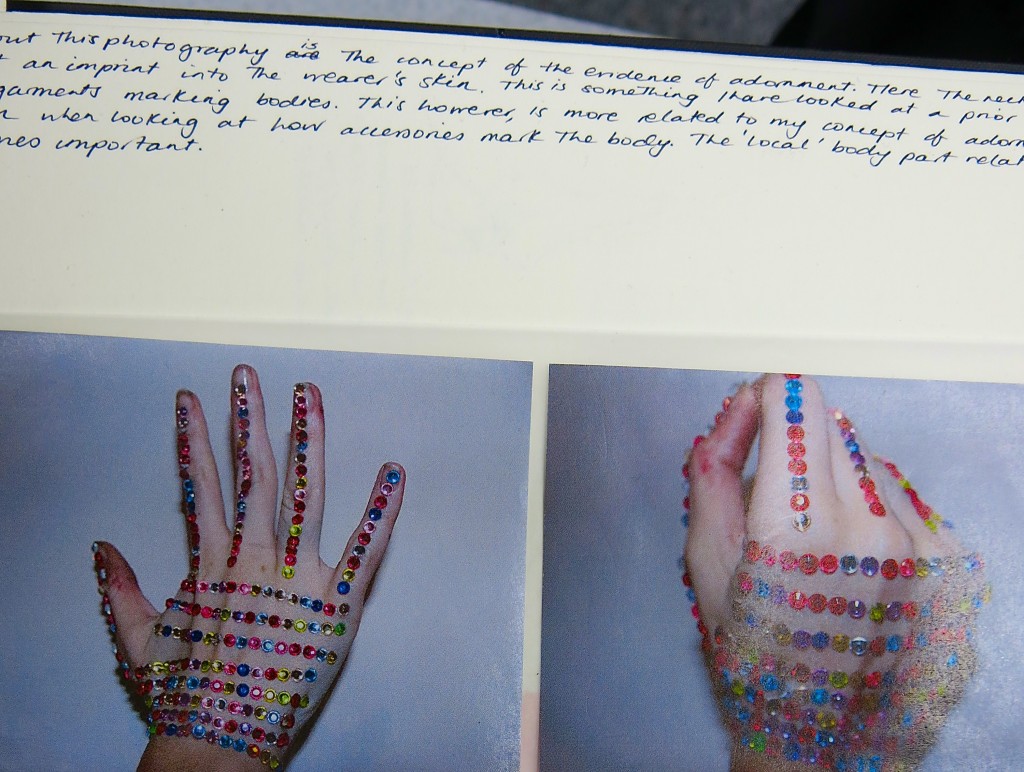 out This photography is The concept of the evidence of adornment. Here The neck
t an imprint into The wearer's skin. This is something I have looked at a prior
garments marking bodies. This however, is more related to my concept of adorn
n when looking at how accessories mark The body. The 'local' body part relat
mes important.